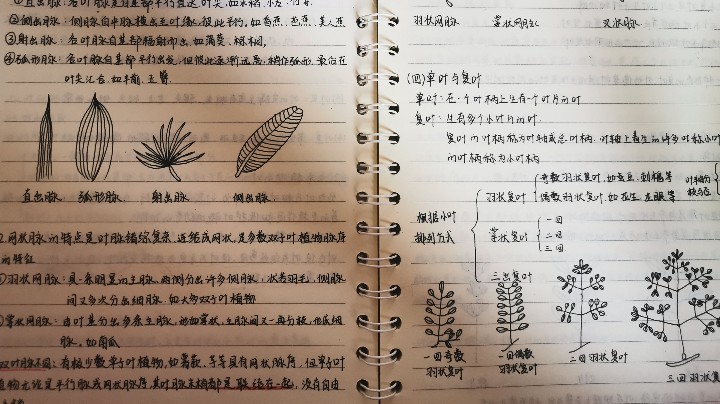 ①直出脉:各叶脉是
②侧出脉:侧脉自中脉横出至叶缘,彼此平行,如香蕉、芭蕉、美人蕉
③射出脉:各叶脉自基部辐射而出,如蒲葵、棕榈。
④弧形脉:各叶脉自基部平行出发,但彼此逐渐远离,稍作弧形,最后在
叶尖汇合,如车前、玉簪。
直出脉 弧形脉 射出脉 侧出脉
2.网状脉的特点是叶脉错综复杂,连结成网状,是多数双子叶植物脉序
的特征
①羽状网脉:具一条明显的主脉,两侧分出许多侧脉,状若羽毛,侧脉
间又多次分出细脉,如大多双子叶植物
②掌状网脉:由叶基分出多条主脉,形如掌状,主脉间又一再分枝,形成细
脉,如南瓜
叉叶脉不同:有极少数单子叶植物,如薯蓣、等具有网状脉序,但单子叶
植物无论是平行脉或网状脉序,其叶脉末梢都是联结在一起,没有自由
羽状网脉 掌状网脉 叉状脉
(四)单叶与复叶
单叶:在一个叶柄上生有一个叶片的叶
复叶:生有多个小叶片的叶。
复叶的叶柄称为叶轴或总叶柄,叶轴上着生的许多叶称小叶
的叶柄称为小叶柄
根据小叶
排列方式
羽状复叶
奇数羽状复叶,如蚕豆、刺槐等
偶数羽状复叶,如花生、皂荚等
叶轴的
掌状复叶
一回
二回
三回
三出复叶
一回奇数
羽状复叶
一回偶数
羽状复叶
二回羽状复叶
三回羽状复叶